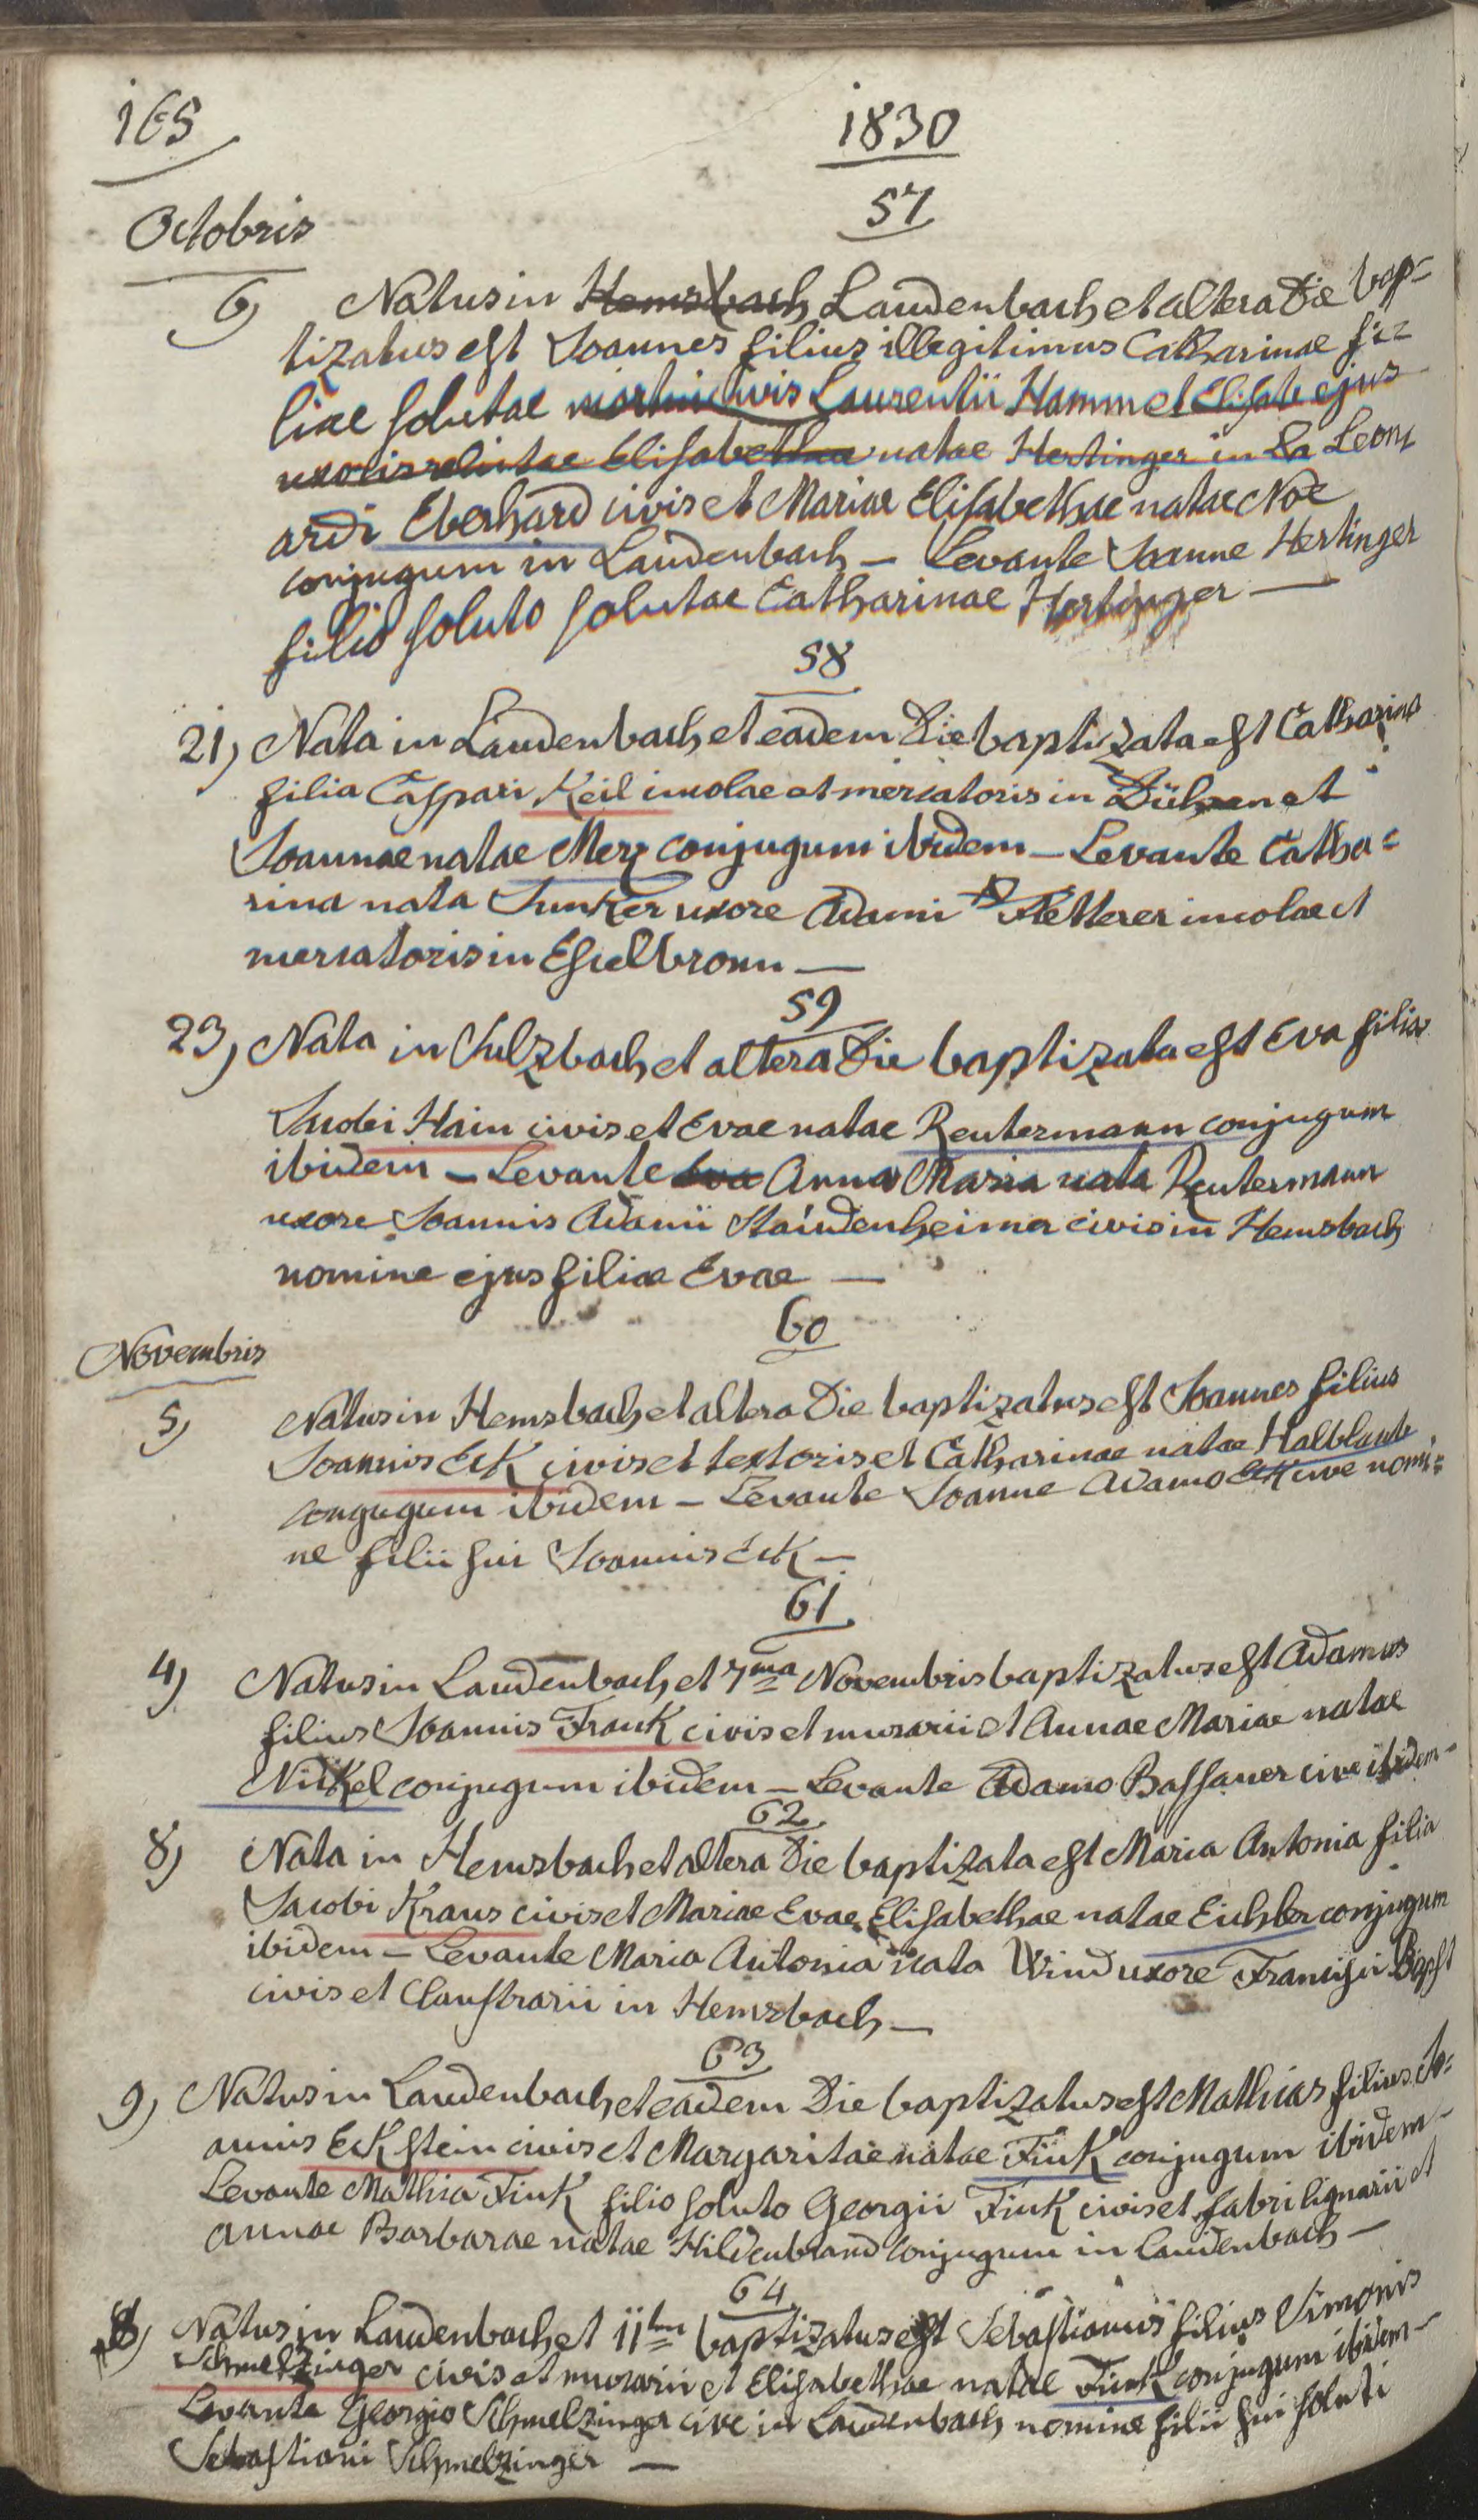 165
1830
57
Octobris
6) Natus in Hemsbach Laudenbach et altera die bap-
tizatus est Joannes filius illegitimus Catharinae fi=
liae solutae civis Laurentii Hamm et Elisab ejus
uxoris relictae Elisabethae natae Hertinger in La Leon
ardi Eberhard civis et Mariae Elisabethae natae Noe
conjugum in Laudenbach – Levante Joanne Hertinger
filio soluto solutae Catharinae Hertinger —
58
21) Nata in Laudenbach et eadem die baptizata est Catharina
filia Caspari Keil incolae et mercatoris in Dühren et
Joannae natae Merz conjugum ibidem – Levante Catha=
rina nata Junker uxore Adami Fletterer incolae et
mercatoris in Eschelbronn —
59
23) Nata in Sulzbach et altera die baptizata est Eva filia
Jacobi Hain civis et Evae natae Reutermann conjugum
ibidem – Levante Eva Anna Maria nata Reutermann
uxore Joannis Adami Staudenheimer civis in Hemsbach
nomine ejus filiae Evae —
60
Novembris
5) Natus in Hemsbach et altera die baptizatus est Joannes filius
Joannis Eck civis et textoris et Catharinae natae Halblaub
conjugum ibidem – Levante Joanne Adamo Eck cive nomi=
ne filii sui Joannis Eck –
61
4) Natus in Laudenbach et 7ma Novembris baptizatus est Adamus
filius Joannis Frank civis et murarii et Annae Mariae natae
Nickel conjugum ibidem – Levante Adamo Bassauer cive ibidem –
62
8) Nata in Hemsbach et altera die baptizata est Maria Antonia filia
Jacobi Kraus civis et Mariae Evae Elisabethae natae Eichler conjugum
ibidem – Levante Maria Antonia nata Wind uxore Francisci Bapst
civis et Claustrarii in Hemsbach –
63
9) Natus in Laudenbach et eadem die baptizatus est Mathias filius Jo=
annis Eckstein civis et Margaritae natae Fink conjugum ibidem –
Levante Mathia Fink filio soluto Georgii Fink civis et fabri lignarii et
Annae Barbarae natae Hildenbrand conjugum in Laudenbach –
64
8) Natus in Laudenbach et 11tm baptizatus est Sebastianus filius Simonis
Schmelzinger civis et murarii et Elisabethae natae Fink conjugum ibidem –
Levante Georgio Schmelzinger cive in Laudenbach nomine filii sui soluti
Sebastiani Schmelzinger —